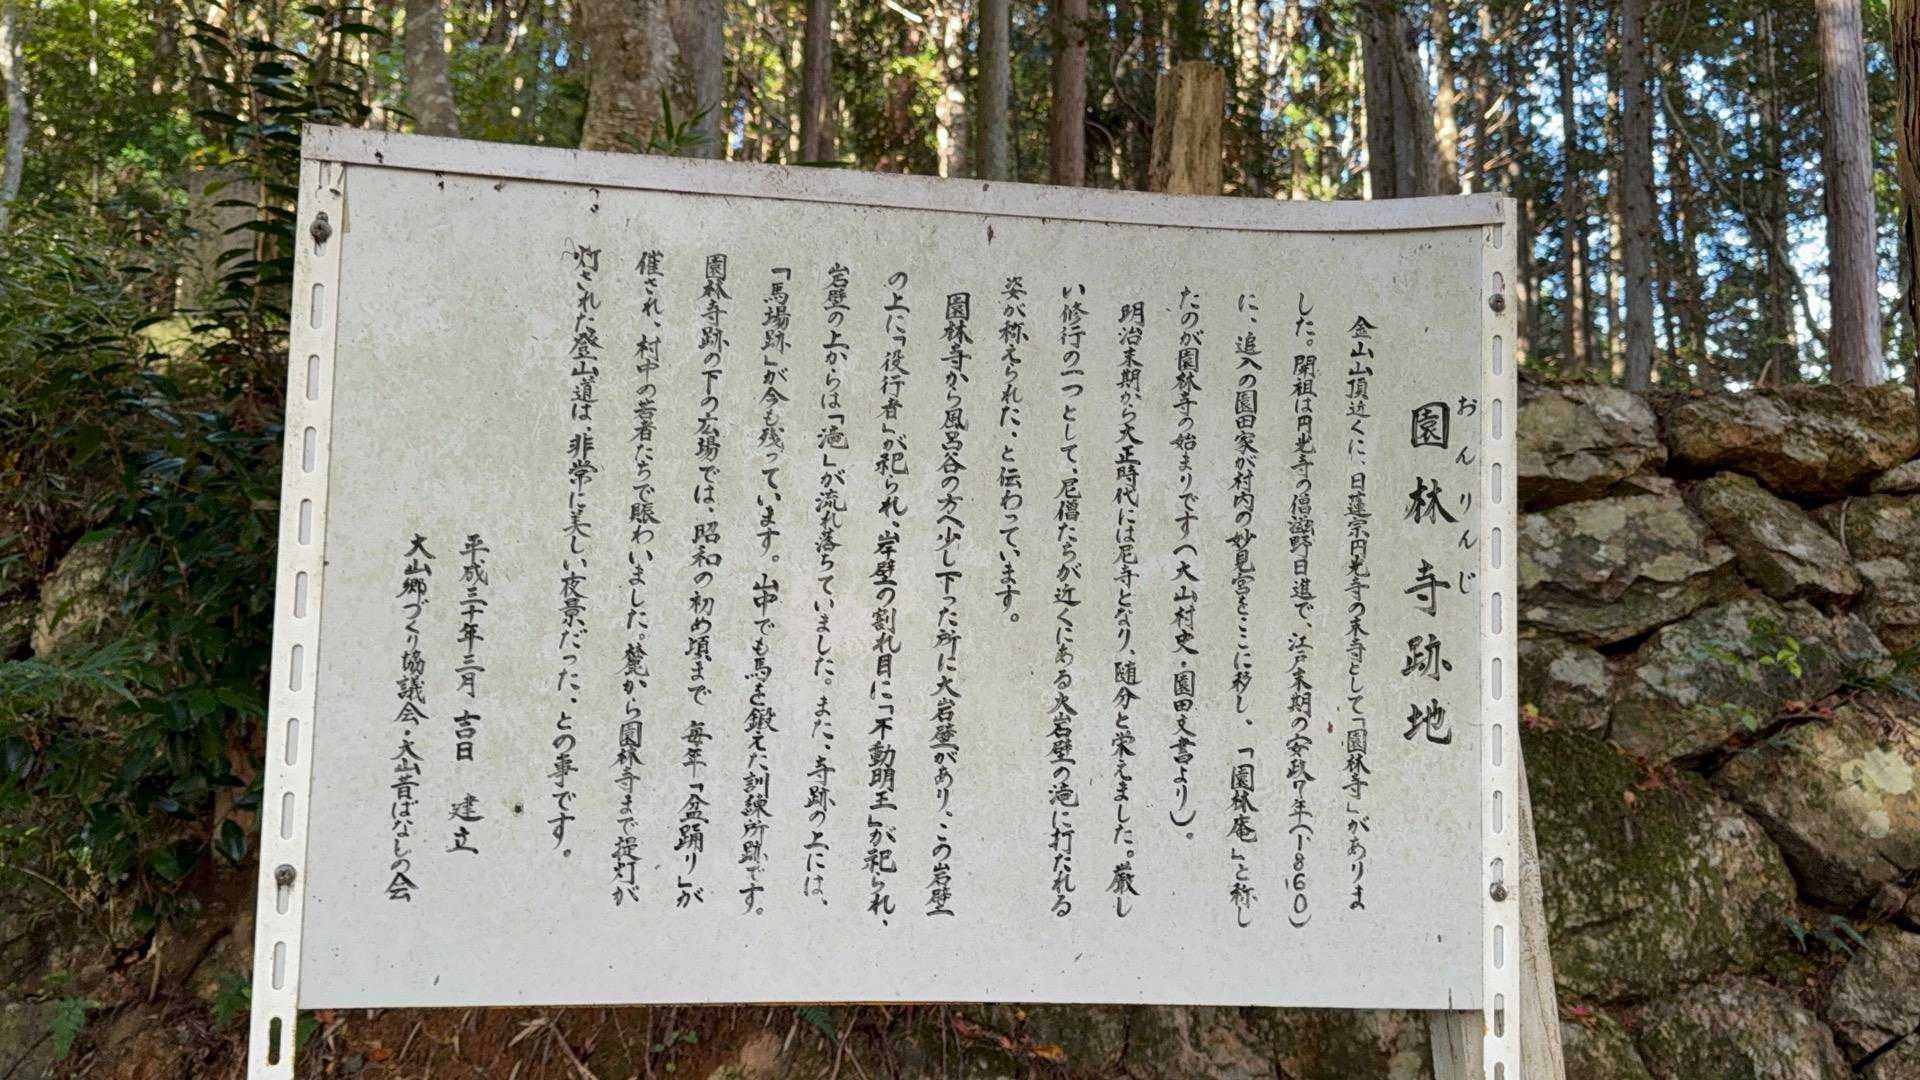 おんりんじ
園林寺跡地
金山山頂近くに、日蓮宗円光寺の末寺として「園林寺」がありま
した。開祖は円光寺の僧滋野日進で、江戸末期の安政7年(1860)
に、追入の園田家が村内の妙見宮をここに移し、「園林庵」と称し
たのが園林寺の始まりです(大山村史・園田文書より)。
明治末期から大正時代には尼寺となり、随分と栄えました。厳し
い修行の一つとして、尼僧たちが近くにある大岩壁の滝に打たれる
姿が称えられた、と伝わっています。
園林寺から風呂谷の方へ少し下った所に大岩壁があり、この岩壁
の上に「役行者」が祀られ、岸壁の割れ目に「不動明王」が祀られ、
岩壁の上からは「滝」が流れ落ちていました。また、寺跡の上には、
「馬場跡」が今も残っています。山中でも馬を鍛えた訓練所跡です。
園林寺跡の下の広場では、昭和の初め頃まで 毎年「盆踊り」が
催され、村中の若者たちで賑わいました。麓から園林寺まで提灯が
灯された登山道は、非常に美しい夜景だった、との事です。
平成三十年三月 吉日 建立
大山郷づくり協議会・大山昔ばなしの会